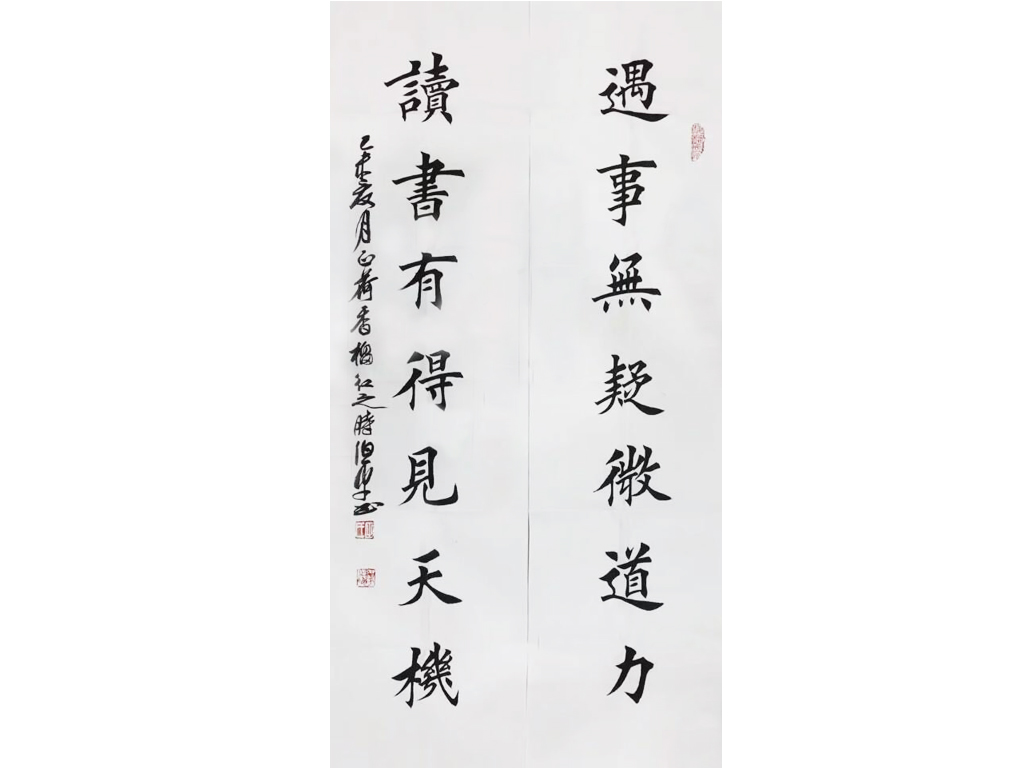 遇事無疑微道力
讀書有得見天機
乙未夏月正荷香榴紅之時